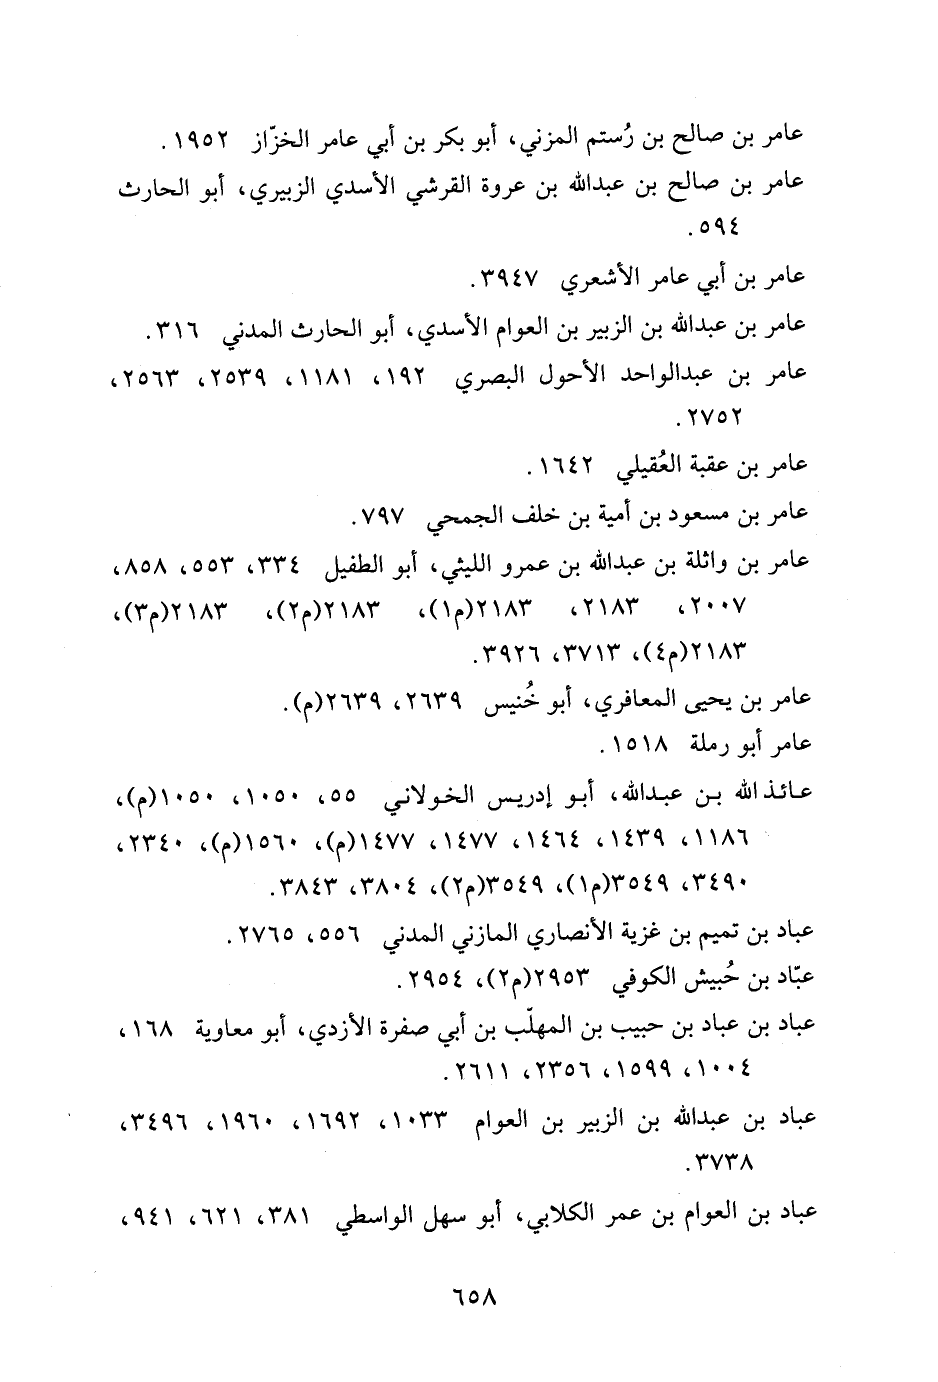 عامر بن صالح بن رُستم المزني، أبو بكر بن أبي عامر الخزّاز ١٩٥٢.
عامر بن صالح بن عبدالله بن عروة القرشي الأسدي الزبيري، أبو الحارث
٥٩٤.
عامر بن أبي عامر الأشعري ٣٩٤٧.
عامر بن عبدالله بن الزبير بن العوام الأسدي، أبو الحارث المدني ٣١٦.
عامر بن عبدالواحد الأحول البصري ١٩٢، ١١٨١، ٢٥٣٩، ٢٥٦٣،
٢٧٥٢.
عامر بن عقبة العُقيلي ١٦٤٢.
عامر بن مسعود بن أمية بن خلف الجمحي ٧٩٧.
عامر بن واثلة بن عبدالله بن عمرو الليثي، أبو الطفيل ٣٣٤، ٥٥٣، ٨٥٨،
٢٠٠٧، ٢١٨٣، ٢١٨٣(م١)، ٢١٨٣(م٢)، ٢١٨٣(م٣)،
٢١٨٣(م٤)، ٣٧١٣، ٣٩٢٦.
عامر بن يحيى المعافري، أبو خُنيس ٢٦٣٩، ٢٦٣٩(م).
عامر أبو رملة ١٥١٨.
عائذالله بن عبدالله، أبو إدريس الخولاني ٥٥، ١٠٥٠، ١٠٥٠(م)،
١١٨٦، ١٤٣٩، ١٤٦٤، ١٤٧٧، ١٤٧٧(م)، ١٥٦٠(م)، ٢٣٤٠،
٣٤٩٠، ٣٥٤٩(م١)، ٣٥٤٩(م٢)، ٣٨٠٤، ٣٨٤٣.
عباد بن تميم بن غزية الأنصاري المازني المدني ٥٥٦، ٢٧٦٥.
عبّاد بن حُبيش الكوفي ٢٩٥٣(م٢)، ٢٩٥٤.
عباد بن عباد بن حبيب بن المهلّب بن أبي صفرة الأزدي، أبو معاوية ١٦٨،
١٠٠٤، ١٥٩٩، ٢٣٥٦، ٢٦١١.
عباد بن عبدالله بن الزبير بن العوام ١٠٣٣، ١٦٩٢، ١٩٦٠، ٣٤٩٦،
٣٧٣٨.
عباد بن العوام بن عمر الكلابي، أبو سهل الواسطي ٣٨١، ٦٢١، ٩٤١،
٦٥٨